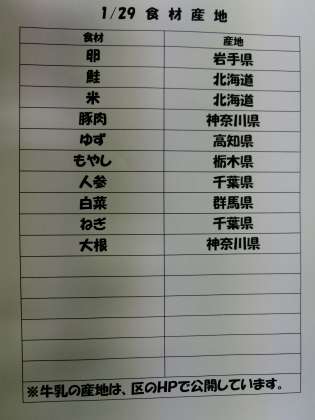 1/29 食材産地
食材 産地
卵 岩手県
鮭 北海道
米 北海道
豚肉 神奈川県
ゆず 高知県
もやし 栃木県
人参 千葉県
白菜 群馬県
ねぎ 千葉県
大根 神奈川県
※牛乳の産地は、区のHPで公開しています。